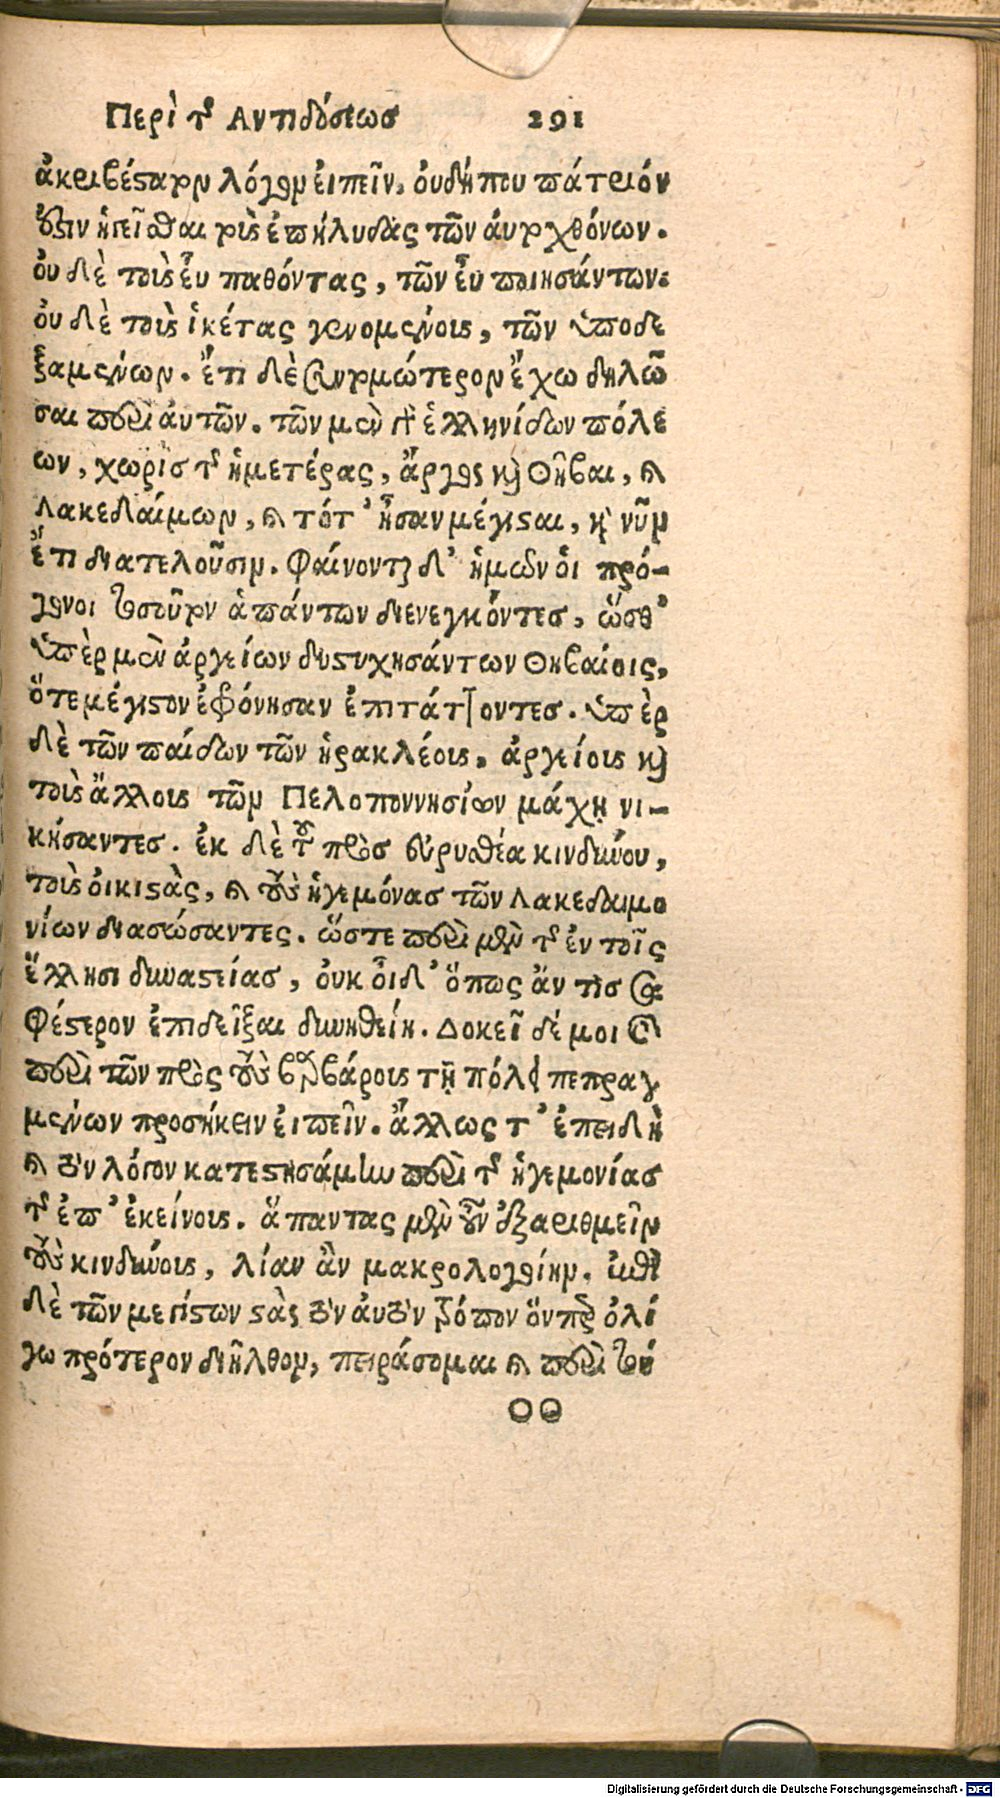 Περὶ τῆς Αντιδόσεως 291
ἀκριβέστατον λόγον ἐιπεῖν, ὀυδήπου πάτριόν
ὅστιν ἡγεῖσθαι τοὺς ἐπήλυδας τῶν ἀυτοχθόνων.
ὀυ δὲ τοὺς ἒυ παθόντας, τῶν ἒυ ποιησάντων.
ὀυ δὲ τοὺς ἱκέτας γενομένους, τῶν ὑποδε
ξαμένων. ἔτι δὲ συντομώτερον ἔχω δηλῶ
σαι περὶ ἀυτῶν. τῶν μὲν γὰρ ἑλληνίδων πόλε
ων, χωρὶς τῆς ἡμετέρας, ἄργος καὶ Θῆβαι, καὶ
Λακεδαίμων, καὶ τότ' ἦσαν μέγισται, καὶ νῦν
ἔτι διατελοῦσιν. Φαίνονται δ' ἡμῶν ὁι πρό-
γονοι τοσοῦτον ἁπάντων διενεγκόντες, ὥσθ'
ὑπὲρ μὲν ἀργείων δυστυχησάντων Θηβαίοις,
ὅτε μέγιστον ἐφρόνησαν ἐπιτάττοντες. ὑπὲρ
δὲ τῶν παίδων τῶν ἡρακλέους, ἀργείους καὶ
τοὺς ἄλλους τῶν Πελοποννησίων μάχῃ νι-
κήσαντες. ἐκ δὲ τοῦ πρὸς ἐυρυσθέα κινδύνου,
τοὺς ὀικιστὰς, καὶ τοὺς ἡγεμόνας τῶν Λακεδαιμο
νίων διασώσαντες. ὥστε περὶ μὲν τῆς ἐν τοῖς
ἕλλησι δυναστείας, ὀυκ ὂιδ' ὅπως ἄν τὶς σα
φέστερον ἐπιδεῖξαι δυνηθείη. Δοκεῖ δέ μοι καὶ
περὶ τῶν πρὸς τοὺς βαρβάρους τῇ πόλει πεπραγ
μένων προσήκειν ἐιπεῖν. ἄλλως τ' ἐπειδὴ
καὶ τὸν λόγον κατεστησάμην περὶ τῆς ἡγεμονίας
τῆς ἐπ' ἐκείνους. ἅπαντας μὲν οὖν ἐξαριθμεῖν
τοὺς κινδύνους, λίαν ἂν μακρολογοίην. ἐπὶ
δὲ τῶν μεγίστων στὰς τὸν ἀυτὸν τρόπον ὅνπερ ὀλί
γω πρότερον διῆλθον, πειράσομαι καὶ περὶ τού
οο
Digitalisierung gefördert durch die Deutsche Forschungsgemeinschaft - DFG